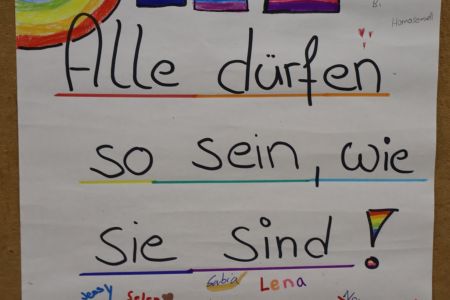 B.
Homosexuell
Alle dürfen
so sein, wie
sie sind!
Jenny Selena Gabria Lena